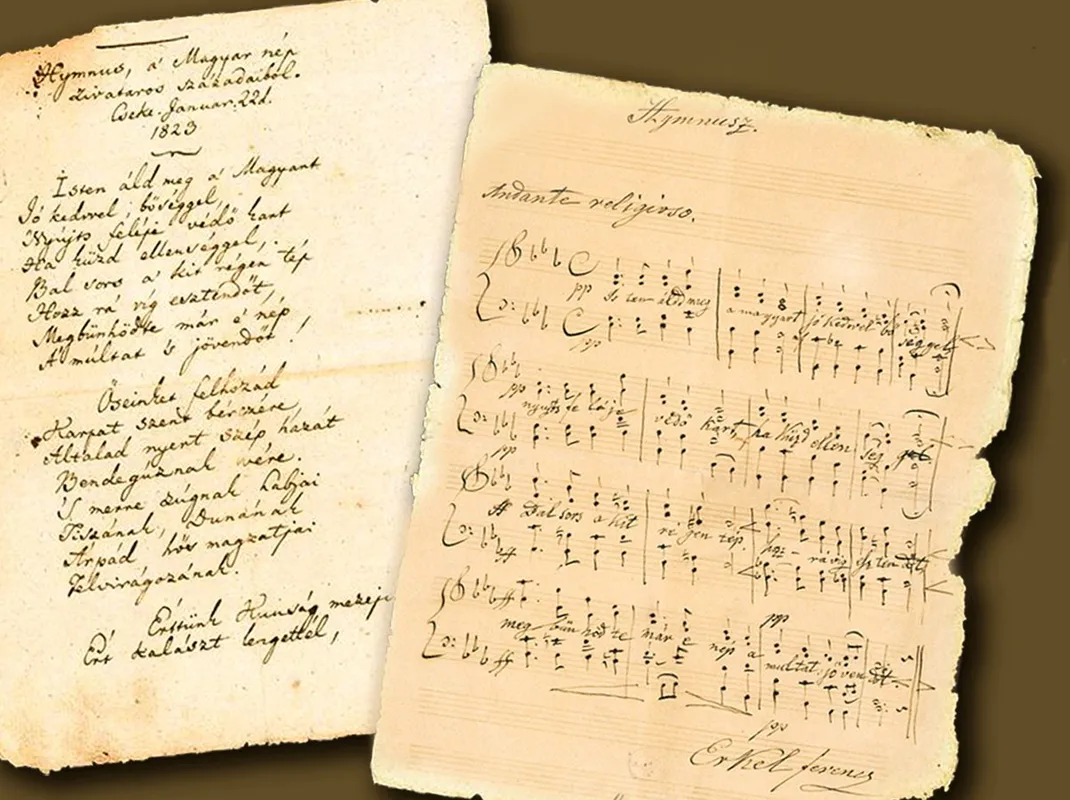 Hymnus, a' Magyar nép
zivataros századaiból.
Cseke. Januar. 22d.
1823
Isten áld meg a' Magyart
Jó kedvvel, bőséggel,
Nyújts feléje védő kart
Ha küzd ellenséggel,
Bal sors a' kit régen tép
Hozz rá víg esztendőt,
Megbünhödte már e' nép
A' múltat 's jövendőt!
Őseinket felhozád
Kárpát szent bérczére,
Általad nyert szép hazát
Bendegúznak vére.
'S merre zúgnak habjai
Tiszának, Dunának
Árpád hős magzatjai
Felvirágozának.
Értünk Kunság mezején
Ért kalászt lengettél,
Hymnusz.
Andante religioso.
pp Is ten áldd meg a magyart jó kedvvel bő séggel
pp
pp nyujts fe léje védő kart, ha küzd ellen ség gel
pp
ff Bal sors a kit ré gen tép hoz rá víg esz ten dőt
ff
ff meg bün hőd te már e nép a pp multat jö ven dőt
ff
pp
Erkel ferencz